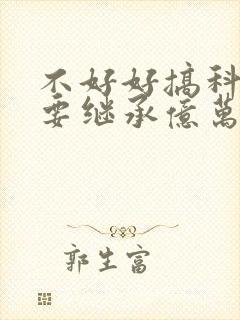 不好好搞科
要继承億萬
郭生富